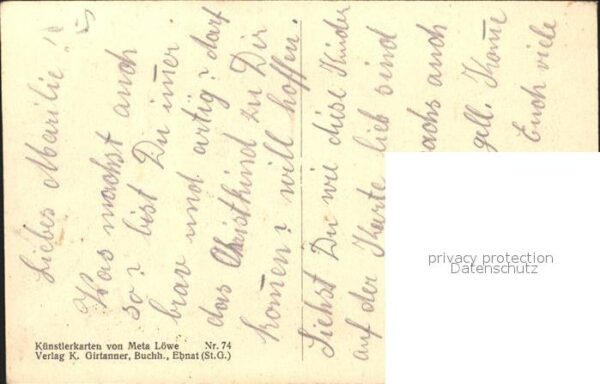 Liebes Marilie!
Was machst auch
so? bist Du im̄er
brav und artig? darf
das Christkind zu Dir
kom̄en? will hoffen.
Siehst Du wie diese Kinder
auf der Karte lieb sind
auch
gell. Kom̄e
Euch viele
Künstlerkarten von Meta Löwe Nr. 74
Verlag K. Girtanner, Buchh., Ebnat (St.G.)
privacy protection
Datenschutz